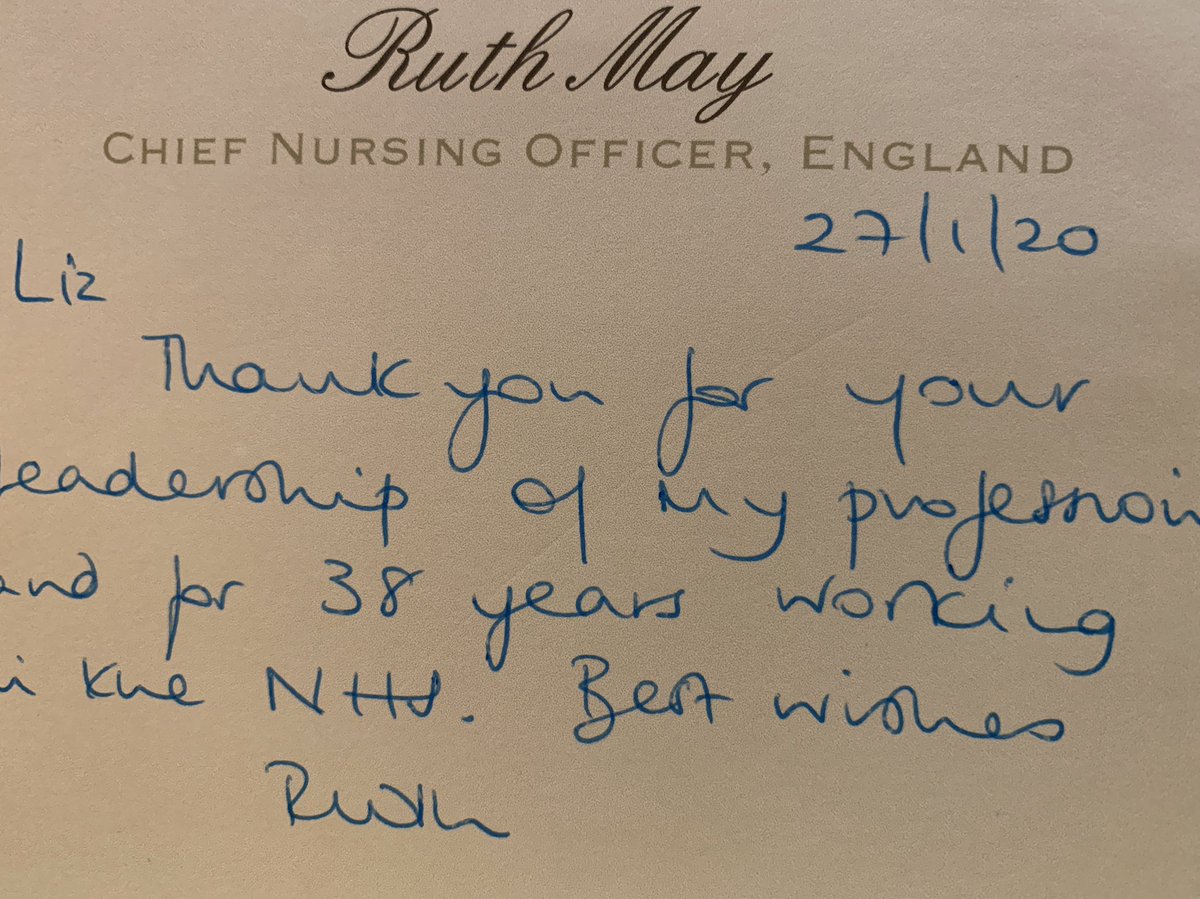 Ruth May
CHIEF NURSING OFFICER, ENGLAND
27/1/20
Liz
Thank you for your
leadership of my profession
and for 38 years working
in the NHS. Best wishes
Ruth